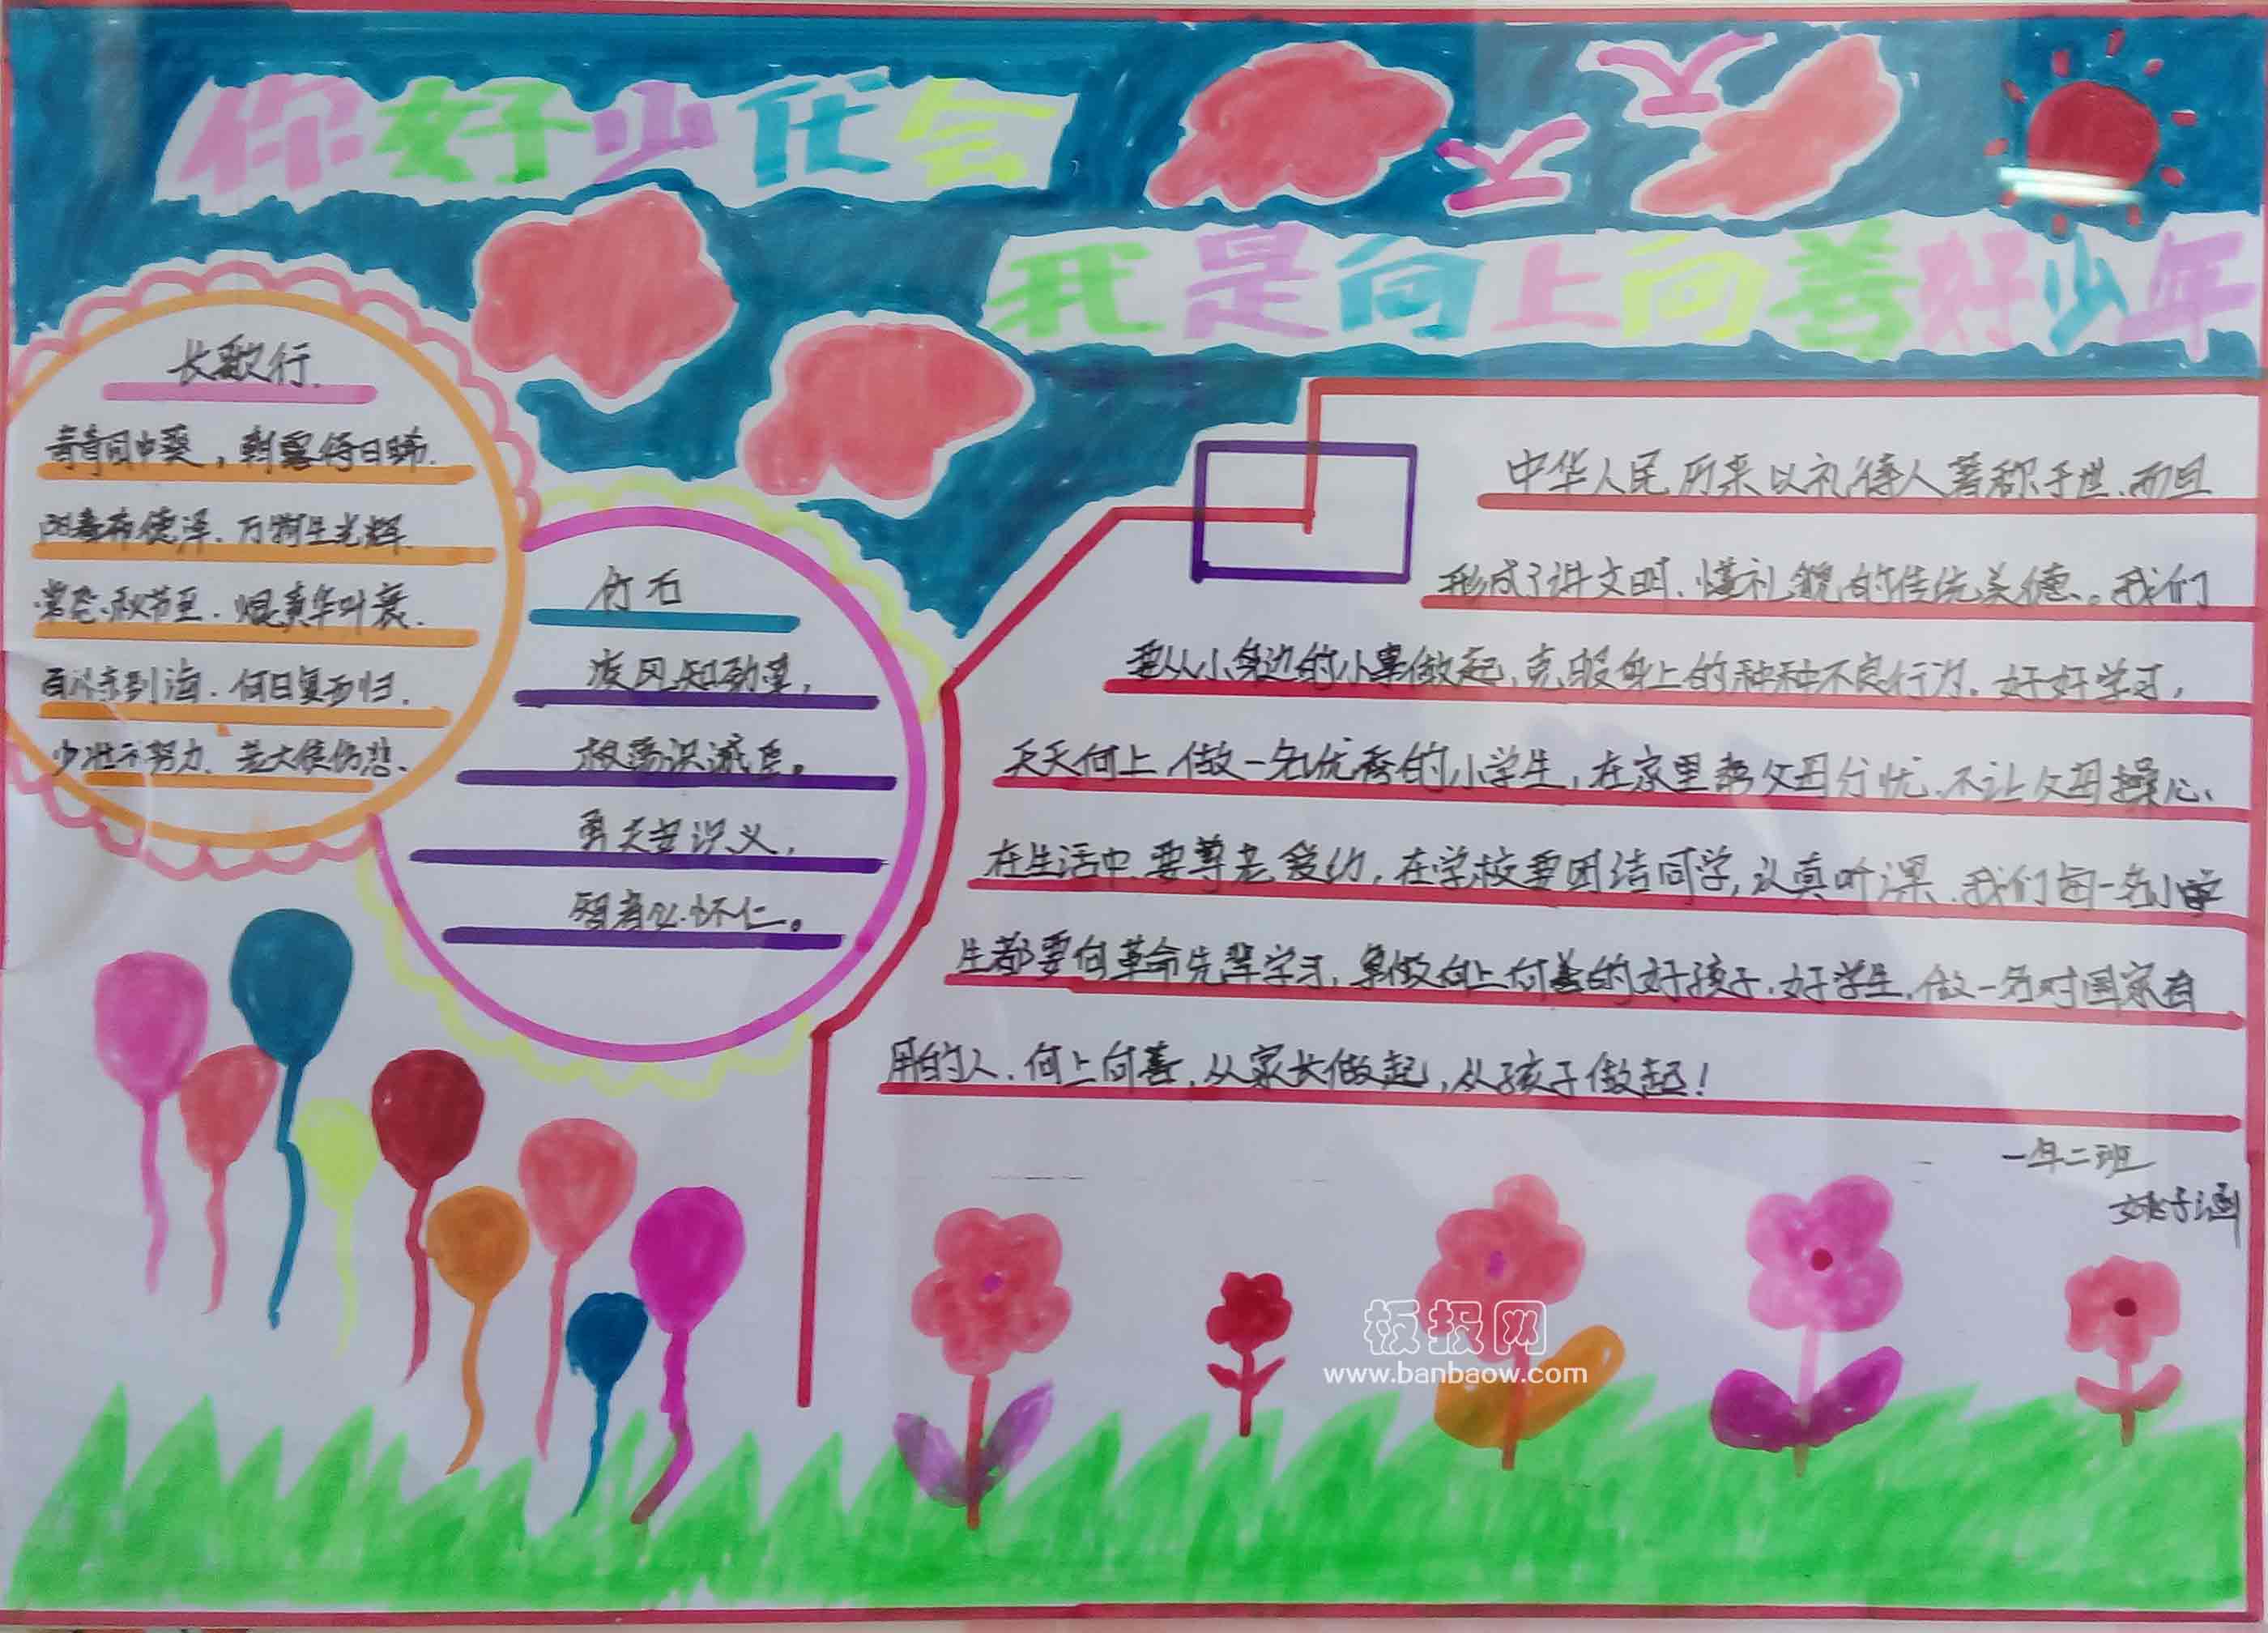 你好少代会
我是向上向善好少年
长歌行
青青园中葵，朝露待日晞.
阳春布德泽、万物生光辉.
常恐秋节至.焜黄华叶衰.
百川东到海.何日复西归.
少壮不努力、老大徒伤悲、
竹石
疾风知劲草，
板荡识诚臣。
勇夫安识义，
智者必怀仁。
中华人民历来以礼待人著称于世、而且
形成了讲文明、懂礼貌的传统美德。我们
要从小身边的小事做起,克服身上的种种不良行为、好好学习，
天天向上,做一名优秀的小学生,在家里帮父母分忧、不让父母操心、
在生活中、要尊老爱幼,在学校要团结同学,认真听课、我们每一名小学
生都要向革命先辈学习,争做向上向善的好孩子、好学生,做一名对国家有
用的人、向上向善,从家长做起,从孩子做起!
一年二班
子涵
板报网
www.banbaow.com